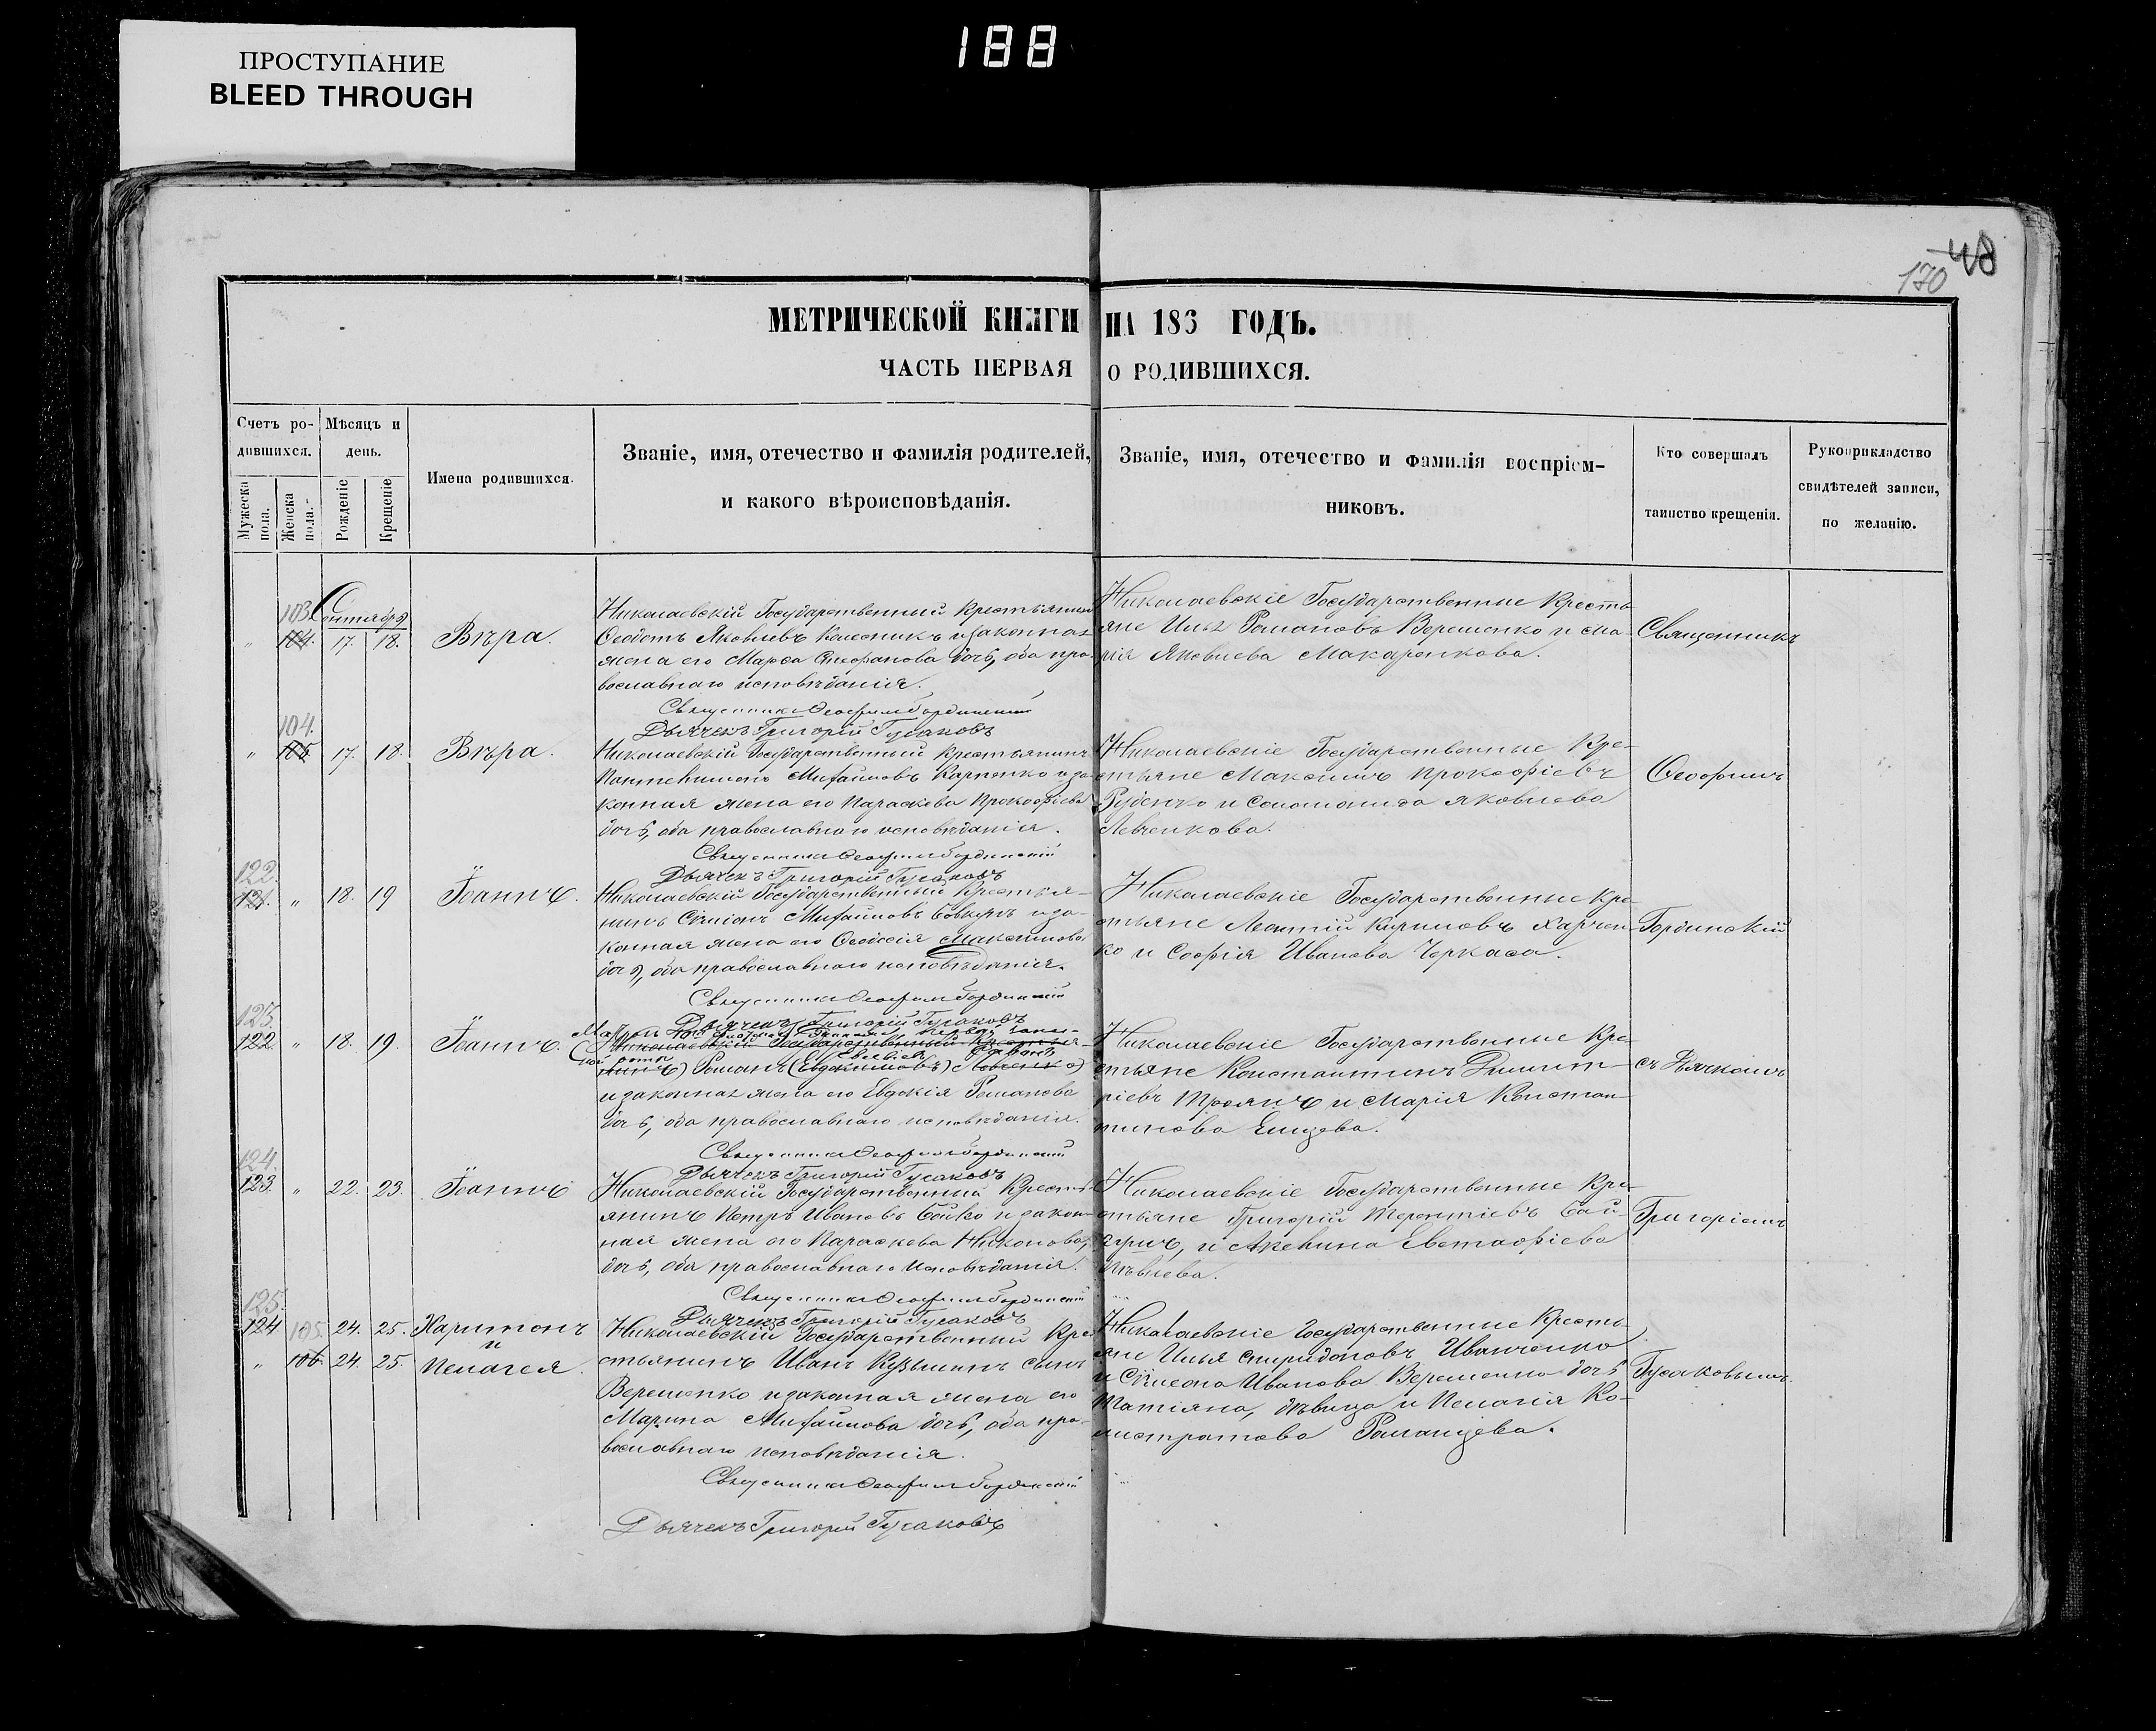 ПРОСТУПАНИЕ
BLEED THROUGH
188
48
170
МЕТРИЧЕСКОЙ КНИГИ НА 186 ГОДЪ.
ЧАСТЬ ПЕРВАЯ О РОДИВШИХСЯ.
Счетъ ро-
дившихся.
Мужеска
пола.
Женска
пола.
Мѣсяцъ и
день.
Рожденіе
Крещеніе
Имена родившихся.
Званіе, имя, отечество и фамилія родителей,
и какого вѣроисповѣданія.
Званіе, имя, отечество и фамилія воспріем-
никовъ.
Кто совершалъ
таинство крещенія.
Рукоприкладство
свидѣтелей записи,
по желанію.
103. Сентября
" 104. 17. 18. Вѣра.
Николаевскій Государственный Крестьянинъ
Ѳеодотъ Яковлевъ Колесникъ и законная
жена его Марѳа Стефанова дочь, оба пра-
вославнаго исповѣданія.
Священникъ Ѳеофилъ Бординскій
Дьячекъ Григорій Гусаковъ
Николаевскіе Государственные Кресть-
яне Илья Романовъ Веременко и Ма-
рія Яковлева Макаренкова.
Священникъ
104.
" 105 17. 18. Вѣра.
Николаевскій Государственный Крестьянинъ
Пантелимонъ Михайловъ Карпенко и за-
конная жена его Параскева Прокофіева
дочь, оба православнаго исповѣданія.
Священникъ Ѳеофилъ Бординскій
Дьячекъ Григорій Гусаковъ
Николаевскіе Государственные Кре-
стьяне Максимъ Прокофіевъ
Руденко и Соломонида Яковлева
Левченкова.
Ѳеофилъ
122.
121. " 18. 19 Іоаннъ.
Николаевскій Государственный Крестья-
нинъ Сѵмеонъ Михайловъ Бовкунъ и за-
конная жена его Ѳеодосія Максимова
дочь, оба православнаго исповѣданія.
Священникъ Ѳеофилъ Бординскій
Дьячекъ Григорій Гусаковъ
Николаевскіе Государственные Кре-
стьяне Леонтій Кириловъ Харчен-
ко и Софія Иванова Черкаса.
Бординскій
123.
122. " 18. 19. Іоаннъ.
Николаевскій Государственный Крестья-
нинъ) Романъ (Евдокимовъ)
и законная жена его Евдокія Романова
дочь, оба православнаго исповѣданія.
Священникъ Ѳеофилъ Бординскій
Дьячекъ Григорій Гусаковъ
Николаевскіе Государственные Кре-
стьяне Константинъ Димит-
ріевъ Троянъ и Марія Констан-
тинова
съ Дьячкомъ
124.
123. " 22. 23. Іоаннъ
Николаевскій Государственный Кресть-
янинъ Петръ Ивановъ Бойко и закон-
ная жена его Параскева Никонова,
дочь, оба православнаго исповѣданія.
Священникъ Ѳеофилъ Бординскій
Дьячекъ Григорій Гусаковъ
Николаевскіе Государственные Кре-
стьяне Григорій Терентіевъ
и Акилина Евстафіева
Григоріемъ
125.
124 105. 24. 25. Харитонъ
и
" 106. 24. 25. Пелагея.
Николаевскій Государственный Кре-
стьянинъ Иванъ Кузьминъ сынъ
Веременко и законная жена его
Марина Михайлова дочь, оба пра-
вославнаго исповѣданія.
Священникъ Ѳеофилъ Бординскій
Дьячекъ Григорій Гусаковъ
Николаевскіе Государственные Кресть-
яне Илья Спиридоновъ Иванченко
и Сѵмеона Иванова Веременко дочь
Татіяна, дѣвица и Пелагія Ка-
листратова Романцева.
Гусаковымъ.